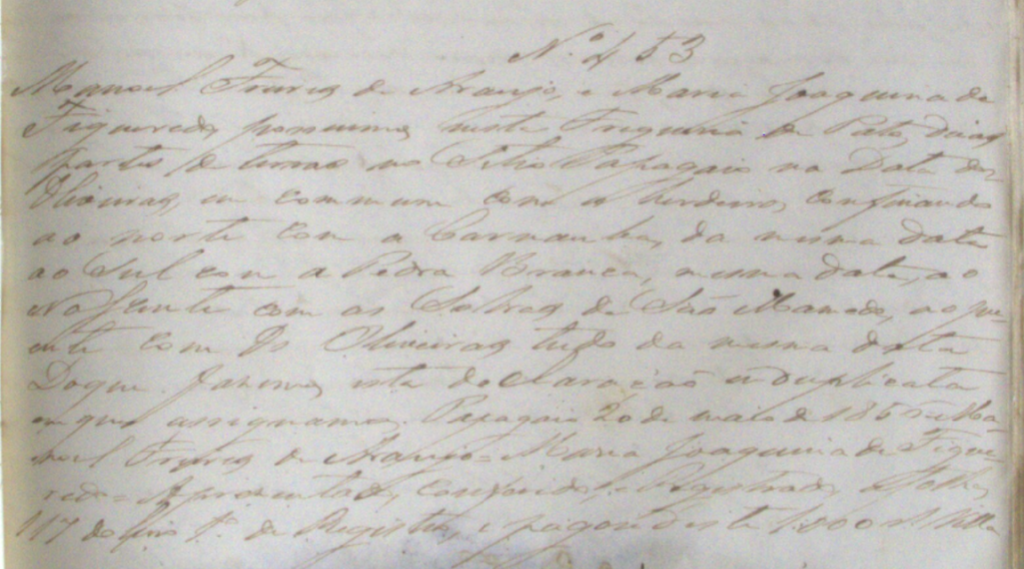 N.º 453
Manoel Freires de Araujo, e Maria Joaquina de
Figueredo, possuimos nesta Freguesia de Patos, duas
partes de terras no Sitio Papagaio na Data dos
Oliveiras, em commum com os herdeiros, confinando
ao norte com a Carnauba, da mesma data
ao Sul com a Pedra Branca, mesma data, ao
Nascente com as Sobras de São Mamede, ao po-
ente com Os Oliveiras tudo da mesma data
Doque fazemos esta declaração e duplicata
em que assignamos. Papagaio 20 de maio de 1855 = Ma-
noel Freires de Araujo = Maria Joaquina de Figue-
redo = Apresentado, conferido, e Registrado, a folhas
117 do livro 1º de Registro, e pagou deste 1.000 rs Villa